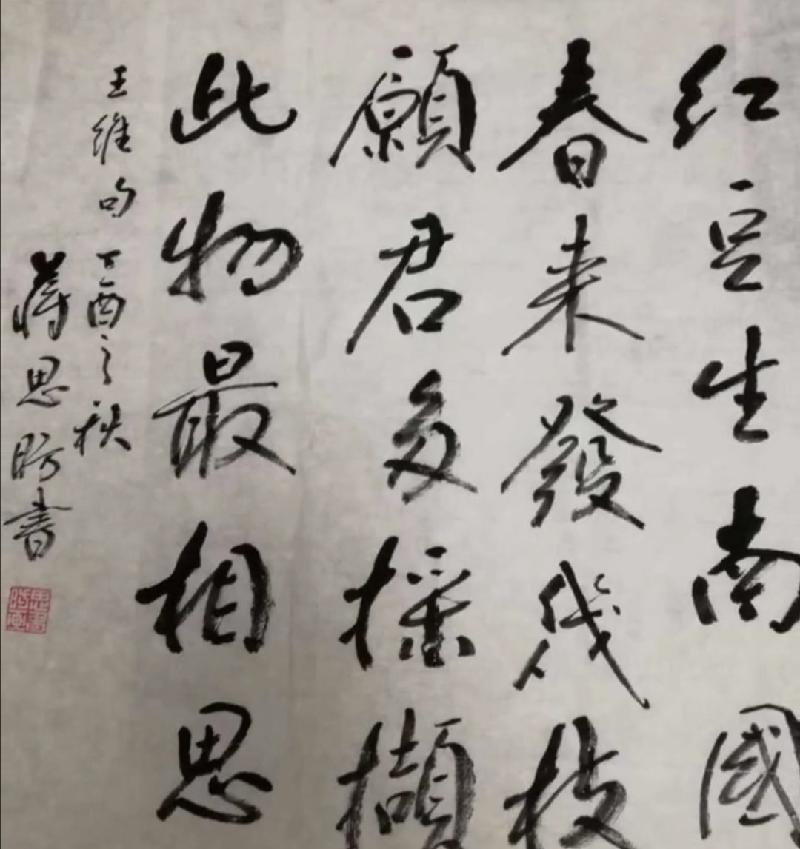 紅豆生南國
春来發幾枝
願君多採擷
此物最相思
王維句丁酉之秋
蔣思
書